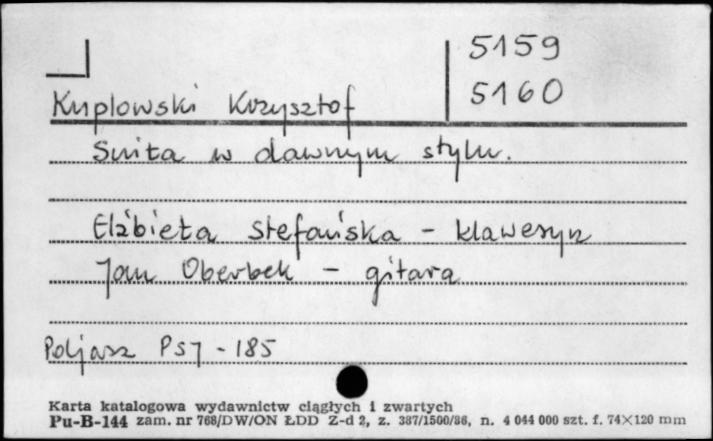 5159
5160
Knplowski Krzysztof
Suita w dawnym stylu.
Elżbieta Stefańska - klawesyn
Jan Oberbek - gitara
Poljazz PSJ - 185
Karta katalogowa wydawnictw ciągłych i zwartych
Pu-B-144 zam. nr 768/DW/ON ŁDD Z-d 2, z. 387/1500/86, n. 4 044 000 szt. f. 74×120 mm